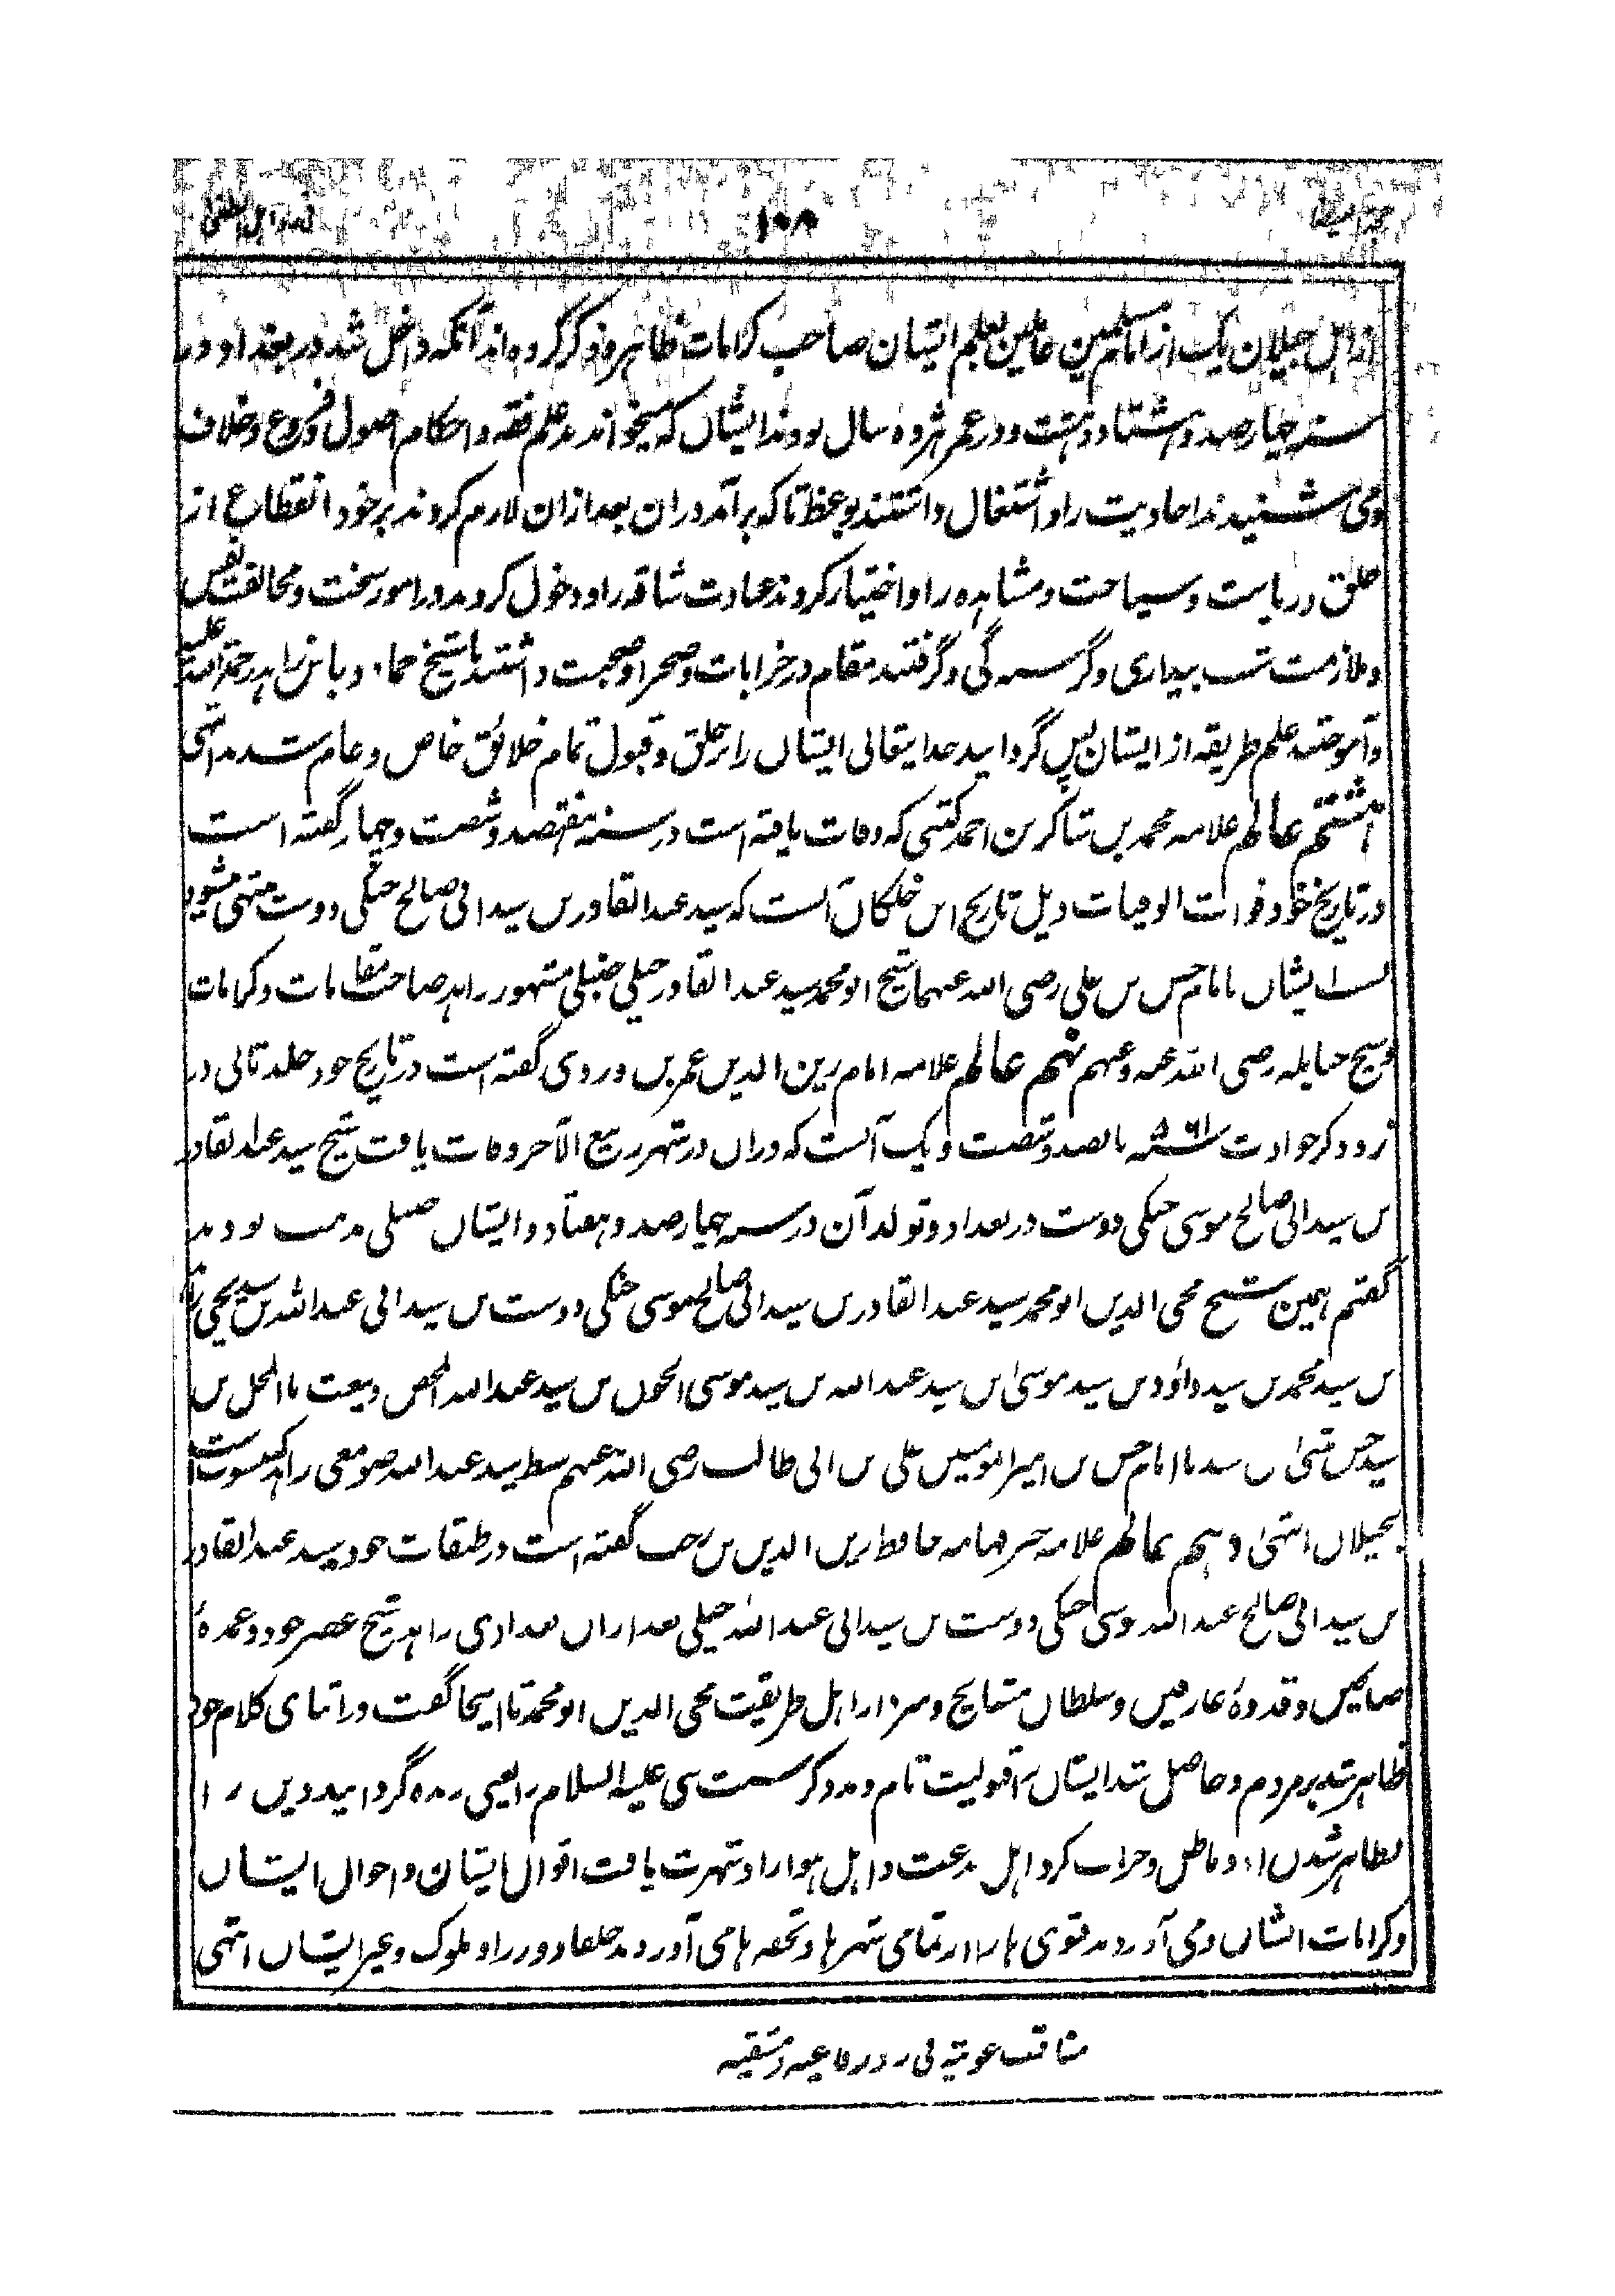 ۱۰۸
از اهل جیلان یک از امام مسلمین عاملین بعلم ایشان صاحب کرامات ظاهره و ذکر کرده اند آنکه داخل شد در بغداد و در
سنه چهار صد و هشتاد و هشت و در عمر هژده سال بودند ایشان که میخواندند علم فقه و احکام اصول و فروع و خلاف
و می شنیدند احادیث را و اشتغال داشتند بوعظ تا که برآمد دران بعد ازان لازم کردند بر خود انقطاع از
خلق در ریاست و سیاحت و مشاهده را و اختیار کردند عبادت شاقه را و دخول کردند در امور سخت و مخالفت نفس
و ملازمت شب بیداری و گرسنگی و گرفتند مقام در خرابات و صحرا و صحبت داشتند با شیخ حماد دباس زاهد رحمة الله علیه
و آموختند علم طریقه از ایشان پس گردانید خدایتعالی ایشان را بر خلق و قبول تمام خلائق خاص و عام شدند انتهی
هشتم عالم علامه محمد بن شاکر بن احمد کتبی که وفات یافته است در سنه هفتصد و شصت و چهار گفته است
در تاریخ خود فوات الوفیات و ذیل تاریخ ابن خلکان آنست که سید عبد القادر بن سید ابی صالح جنگی دوست منتهی میشود
نسب ایشان با امام حسن بن علی رضی الله عنهما شیخ ابو محمد سید عبد القادر جیلی حنبلی مشهور زاهد صاحب مقامات و کرامات
و شیخ حنابله رضی الله عنه و عنهم نهم عالم علامه امام زین الدین عمر بن وردی گفته است در تاریخ خود جلد ثانی در
نزد ذکر حوادث سنه ۵۶۱ پانصد و شصت و یک آنست که دران در شهر ربیع الآخر وفات یافت شیخ سید عبد القادر
بن سید ابی صالح موسی جنگی دوست در بغداد و تولد آن در سنه چهار صد و هفتاد و ایشان حنبلی مذهب بودند
گفتم همین شیخ محی الدین ابو محمد سید عبد القادر بن سید ابی صالح موسی جنگی دوست بن سید ابی عبد الله بن سید یحیی زاهد
بن سید محمد بن سید داؤد بن سید موسیٰ بن سید عبد الله بن سید موسی الجون بن سید عبد الله المحض و یعت بالمجل بن
سید حسن مثنیٰ بن سیدنا امام حسن بن امیر المومنین علی بن ابی طالب رضی الله عنهم سبط سید عبد الله صومعی زاهد که منسوب است
بجیلان انتهیٰ دهم عالم علامه حبر فهامه حافظ زین الدین بن رجب گفته است در طبقات خود سید عبد القادر
بن سید ابی صالح عبد الله موسی جنگی دوست بن سید ابی عبد الله جیلی بعد ازان بغدادی زاهد شیخ عصر خود و عمدهٔ
صالحین و قدوهٔ عارفین و سلطان مشایخ و سردار اهل طریقت محی الدین ابو محمد تا اینجا گفت در اثنای کلام خود
ظاهر شد بر مردم و حاصل شد ایشان را قبولیت تام و مدد کرد سنت نبی علیه السلام را یعنی زنده گردانید دین را
بظاهر شدن او و باطل و خراب کرد اهل بدعت و اهل هوا را و شهرت یافت اقوال ایشان و احوال ایشان
و کرامات ایشان و می آوردند فتوی ها را از تمامی شهرها و تحفه ها می آوردند خلفا و وزرا و ملوک و غیر ایشان انتهی
مناقب غوثیه فی رد رفاعیه دمشقیه